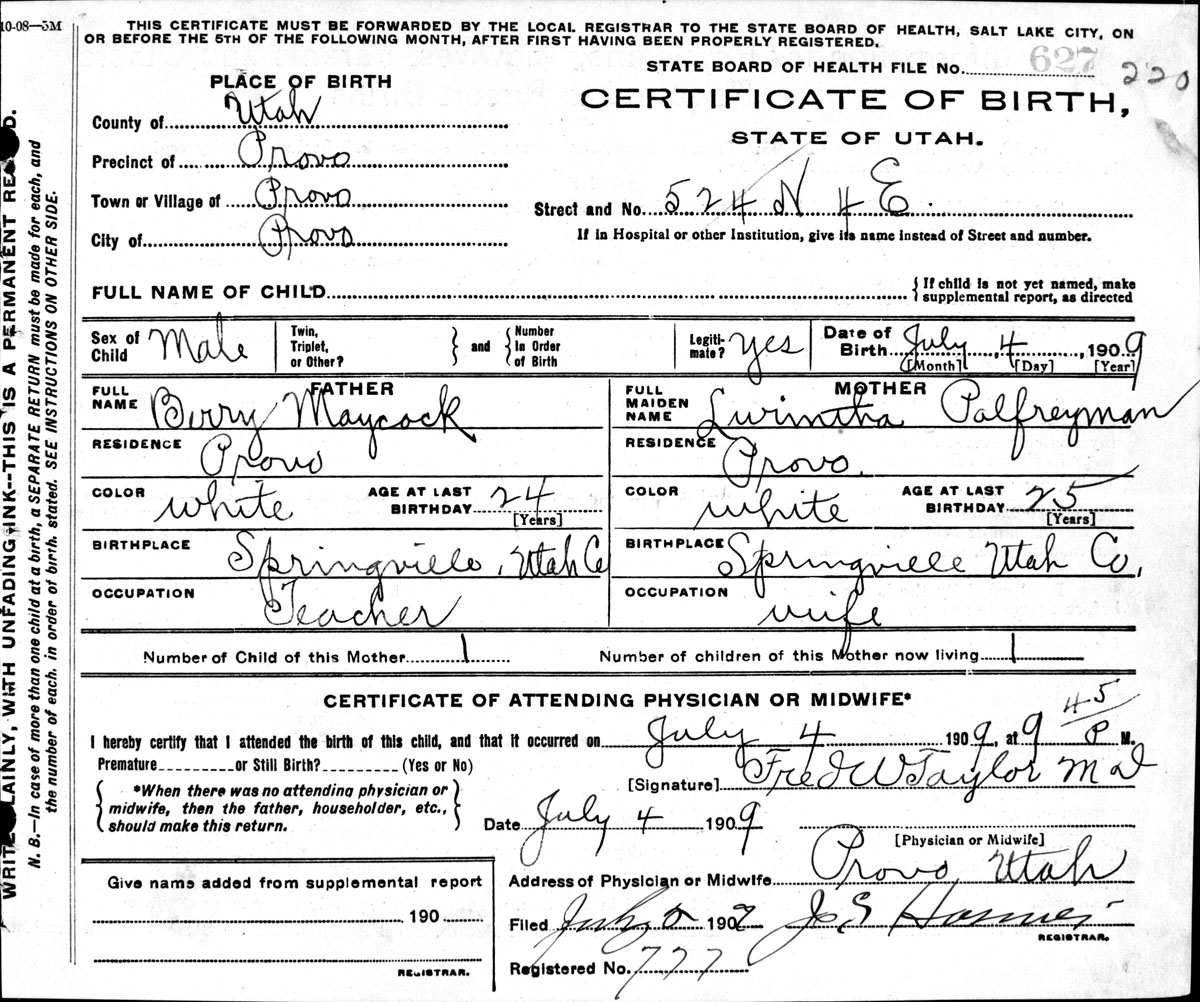 10-08—5M
THIS CERTIFICATE MUST BE FORWARDED BY THE LOCAL REGISTRAR TO THE STATE BOARD OF HEALTH, SALT LAKE CITY, ON
OR BEFORE THE 5TH OF THE FOLLOWING MONTH, AFTER FIRST HAVING BEEN PROPERLY REGISTERED.
STATE BOARD OF HEALTH FILE No. 627 220
PLACE OF BIRTH
CERTIFICATE OF BIRTH,
STATE OF UTAH.
County of Utah
Precinct of Provo
Town or Village of Provo
City of Provo
Street and No. 524 N 4 E.
If in Hospital or other Institution, give its name instead of Street and number.
FULL NAME OF CHILD
If child is not yet named, make
supplemental report, as directed
Sex of Child Male
Twin, Triplet, or Other?
and
Number In Order of Birth
Legiti-mate? yes
Date of Birth July, 4, 1909
[Month] [Day] [Year]
FATHER
FULL NAME Berry Maycock
RESIDENCE Provo
COLOR white AGE AT LAST BIRTHDAY 24
[Years]
BIRTHPLACE Springville, Utah Co
OCCUPATION Teacher
MOTHER
FULL MAIDEN NAME Lurintha Palfreyman
RESIDENCE Provo.
COLOR white AGE AT LAST BIRTHDAY 25
[Years]
BIRTHPLACE Springville Utah Co.
OCCUPATION wife
Number of Child of this Mother 1 Number of children of this Mother now living 1
CERTIFICATE OF ATTENDING PHYSICIAN OR MIDWIFE*
I hereby certify that I attended the birth of this child, and that it occurred on July 4 1909, at 9 45 P M.
Premature or Still Birth? (Yes or No)
[Signature] Fred W Taylor M d
*When there was no attending physician or
midwife, then the father, householder, etc.,
should make this return.
Date July 4 1909
[Physician or Midwife]
Address of Physician or Midwife Provo, Utah
Give name added from supplemental report
190
REGISTRAR.
Filed July 1909
REGISTRAR.
Registered No. 777
WRITE PLAINLY, WITH UNFADING INK--THIS IS A PERMANENT RECORD.
N. B.—In case of more than one child at a birth, a SEPARATE RETURN must be made for each, and
the number of each, in order of birth, stated. SEE INSTRUCTIONS ON OTHER SIDE.